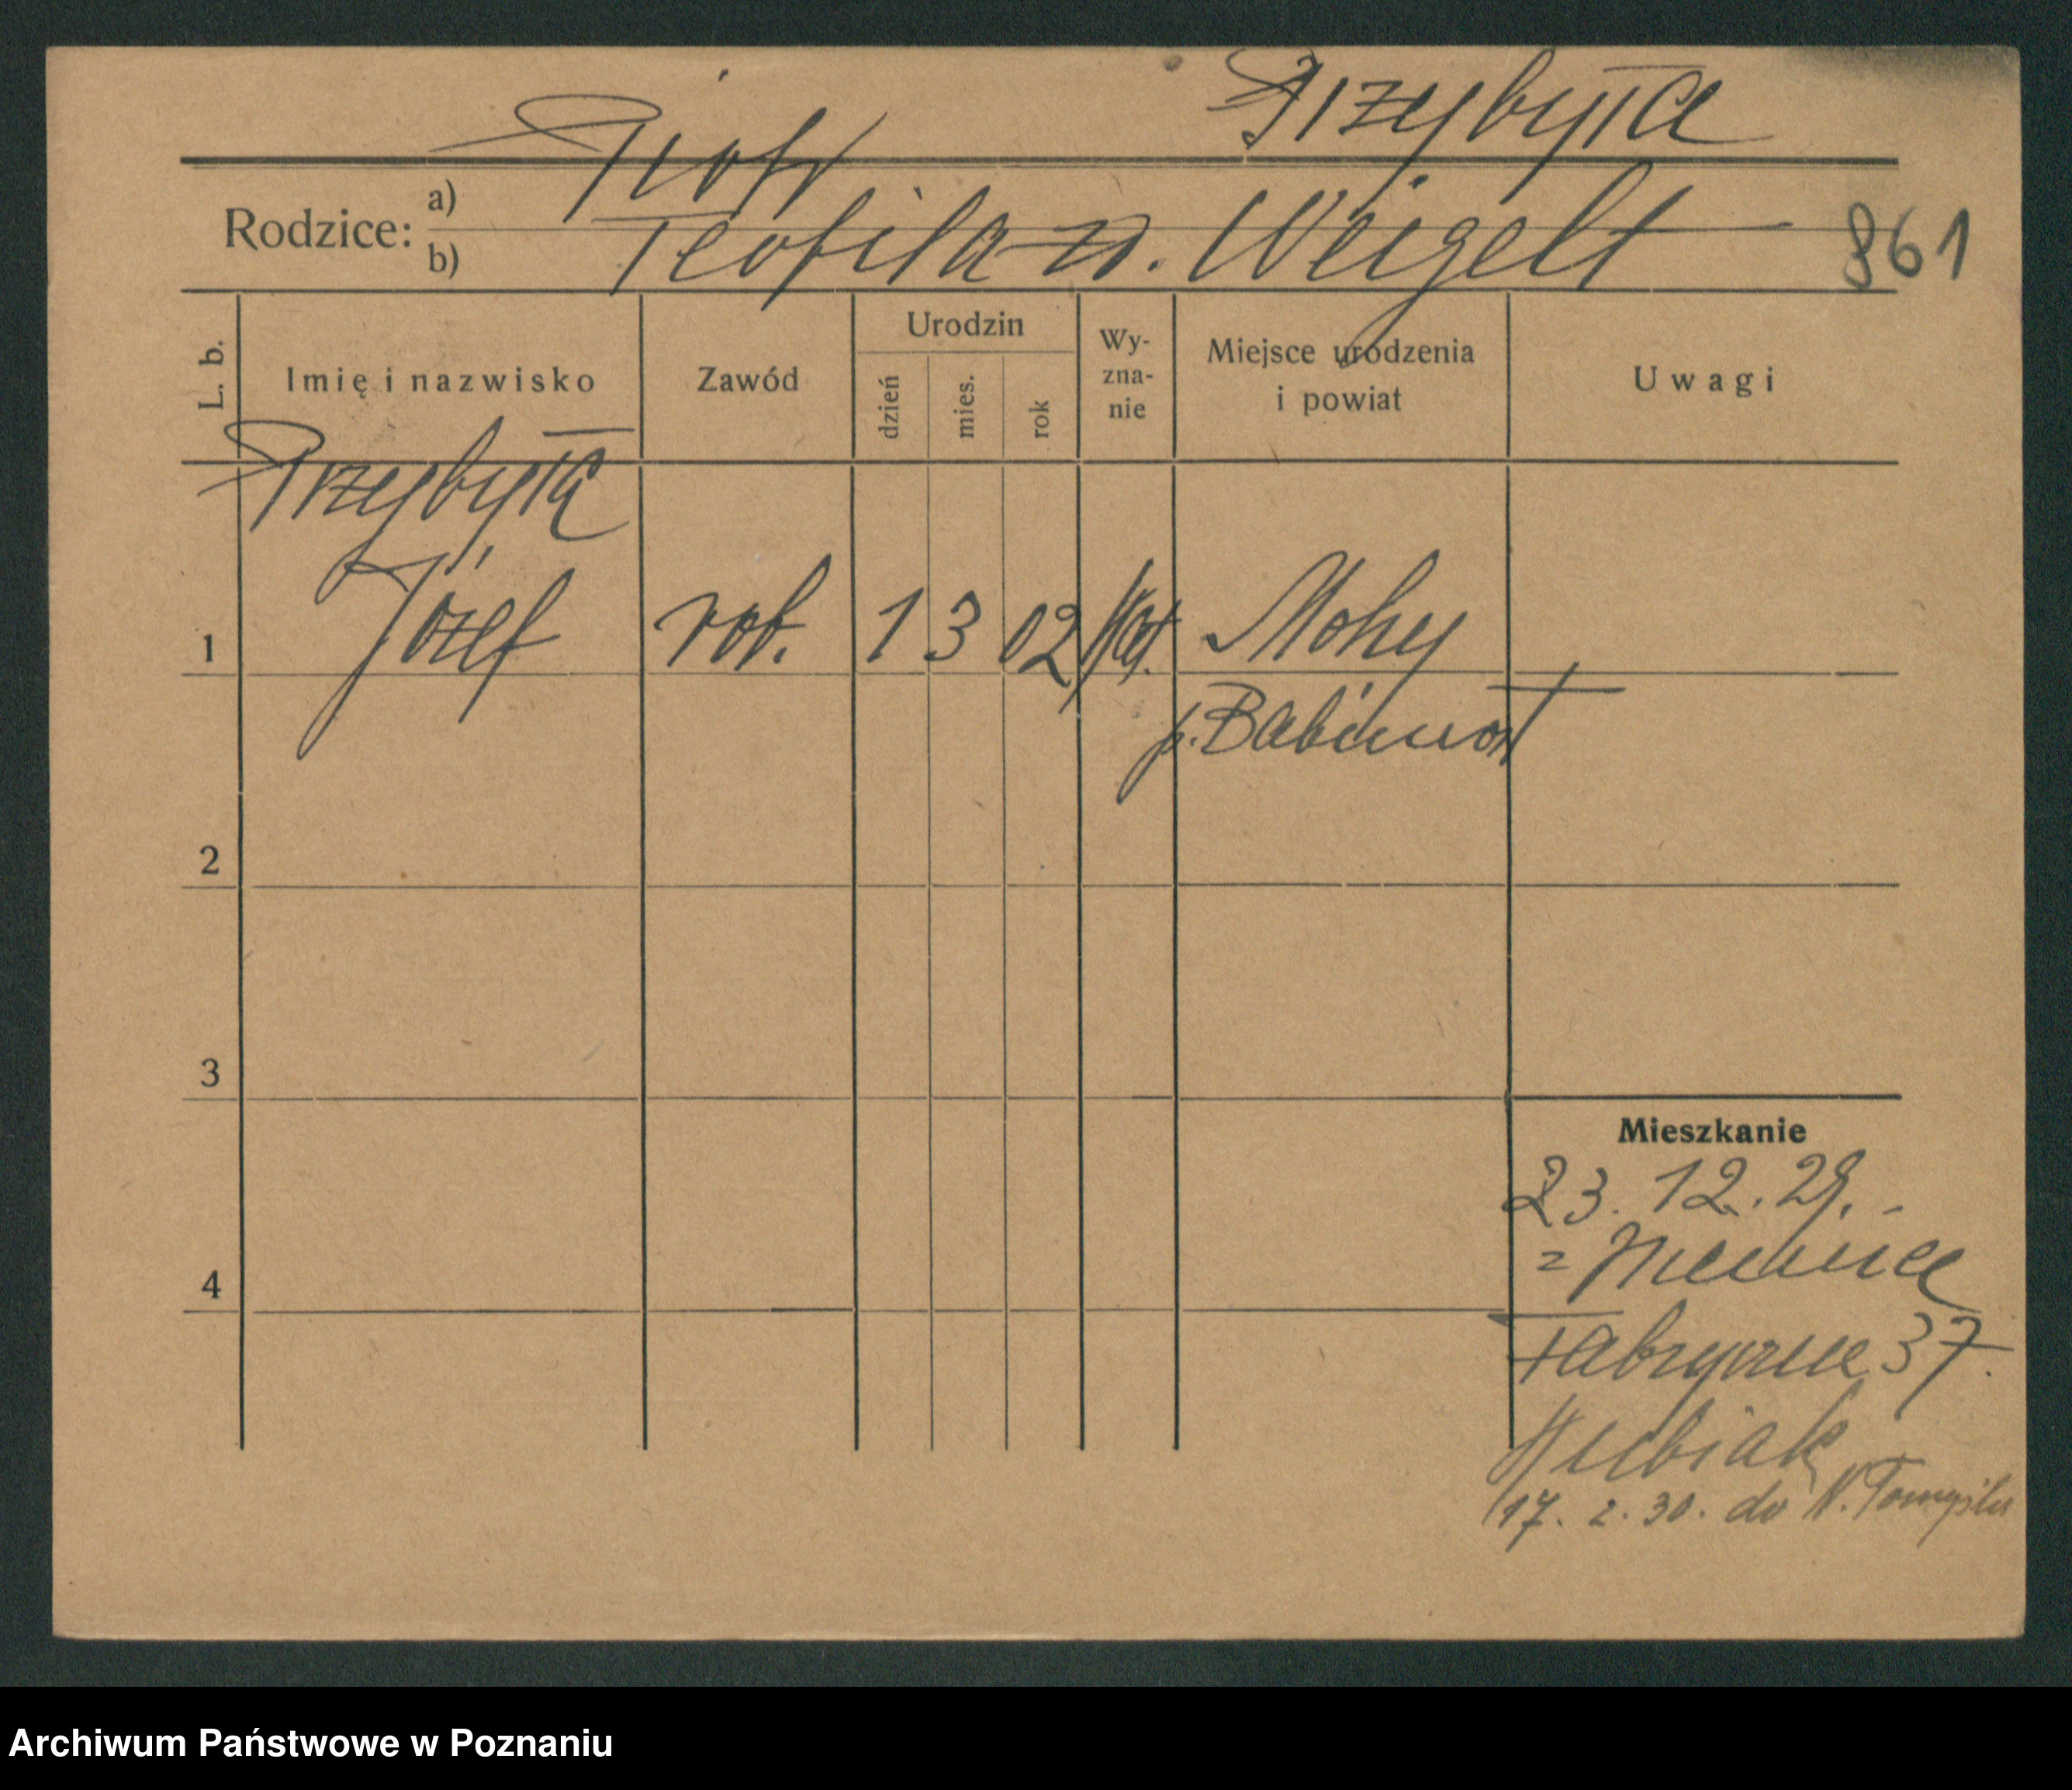 Przybyła
Rodzice: a) Piotr
b) Teofila n. Weigelt
861
L. b. Imię i nazwisko Zawód Urodzin dzień mies. rok Wy-zna-nie Miejsce urodzenia i powiat Uwagi
Przybyła
1 Józef rob. 1 3 02 kat. Mohy
p. Babimost
2
3
4
Mieszkanie
23. 12. 29. -
= Niemiec
Fabryczne 37.
Kubiak
17. 2. 30. do N. Tomyśla
Archiwum Państwowe w Poznaniu